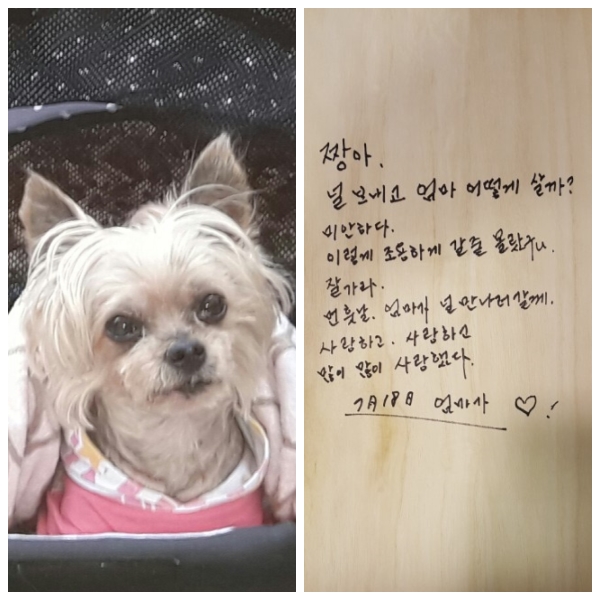 짱아.
널 보내고 엄마 어떻게 살까?
미안하다.
이렇게 조용하게 갈줄 몰랐구나.
잘가라.
먼훗날. 엄마가 널 만나러갈께.
사랑하고. 사랑하고
많이 많이 사랑했다.
7月18日 엄마가 ♡!